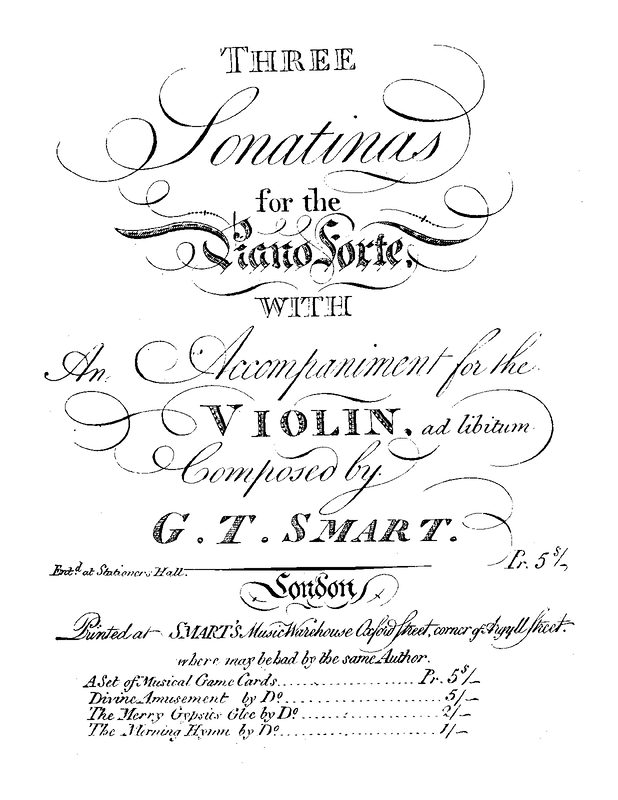 THREE
Sonatinas
for the
Piano Forte,
WITH
An Accompaniment for the
VIOLIN, ad libitum
Composed by
G. T. SMART.
Pr. 5s/-
Entd. at Stationers Hall.
London
Printed at SMART'S Music Warehouse Oxford Street, corner of Argyll Street.
where may be had by the same Author.
A Set of Musical Game Cards.................... Pr. 5s/-
Divine Amusement by Do......................... 5/-
The Merry Gypsies Glee by Do................... 2/-
The Morning Hymn by Do......................... 1/-